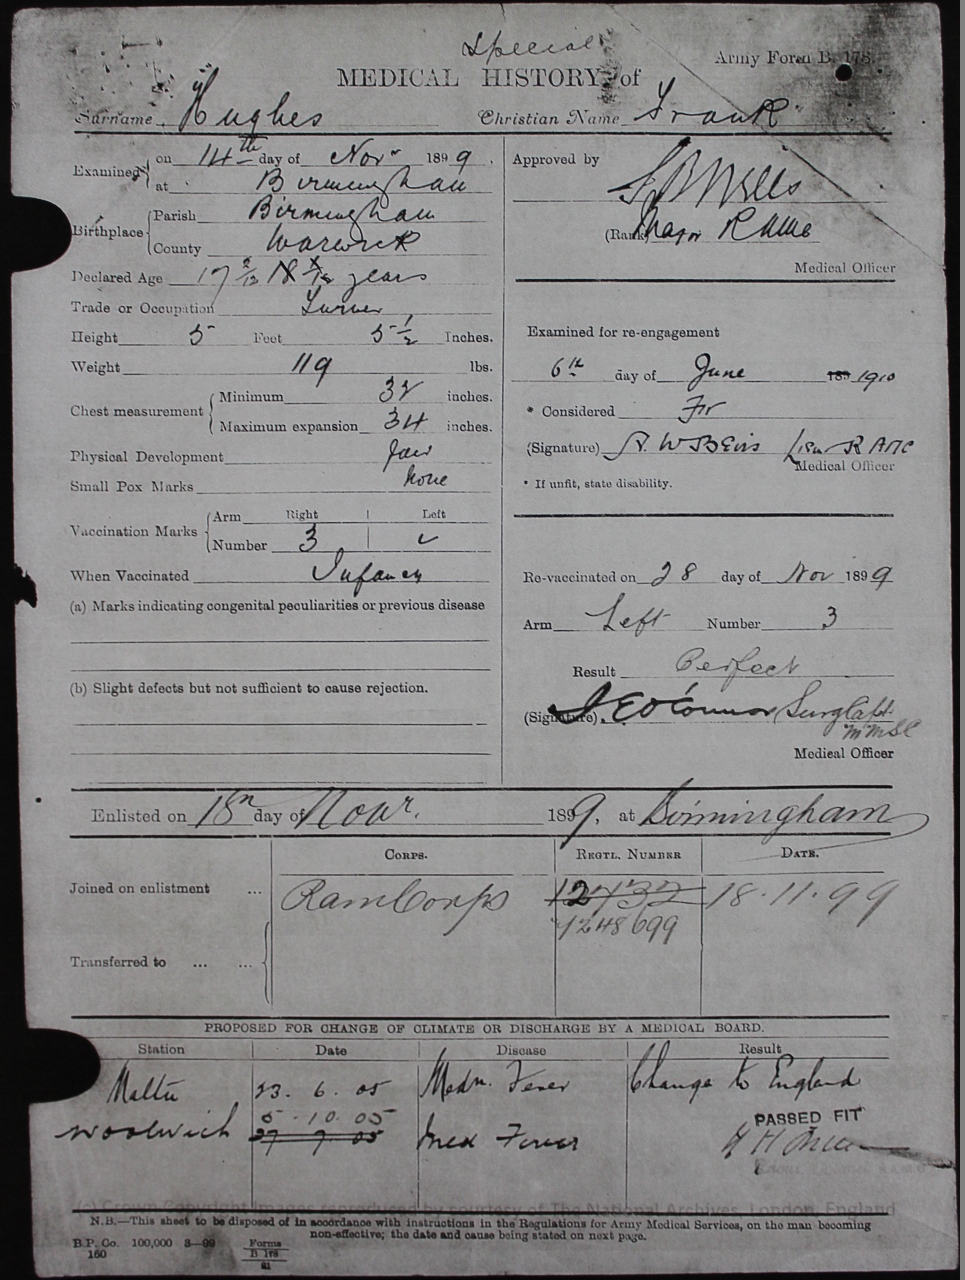 Special
Army Form B. 178.
MEDICAL HISTORY of
Surname Hughes Christian Name Frank
Examined on 14th day of Novr 1899.
at Birmingham
Birthplace Parish Birmingham
County Warwick
Declared Age 17 2/12 18 years
Trade or Occupation Turner
Height 5 Feet 5 1/2 Inches.
Weight 119 lbs.
Chest measurement Minimum 32 inches.
Maximum expansion 34 inches.
Physical Development Fair
Small Pox Marks None
Vaccination Marks Arm Right Left
Number 3
When Vaccinated Infancy
(a) Marks indicating congenital peculiarities or previous disease
(b) Slight defects but not sufficient to cause rejection.
Approved by
(Rank) Major RAMC
Medical Officer
Examined for re-engagement
6th day of June 189 1910
* Considered Fit
(Signature) Lieu RAMC
Medical Officer
* If unfit, state disability.
Re-vaccinated on 28 day of Nov 1899
Arm Left Number 3
Result Perfect
(Signature) O'Connor Surg Capt
Medical Officer
Enlisted on 18th day of Novr. 1899, at Birmingham
CORPS. REGTL. NUMBER DATE.
Joined on enlistment ... RamCorps 18.11.99
7248699
Transferred to ... ...
PROPOSED FOR CHANGE OF CLIMATE OR DISCHARGE BY A MEDICAL BOARD.
Station Date Disease Result
Malta 23. 6. 05 Medn. Fever Change to England
5. 10. 05 PASSED FIT
Woolwich 27 9 05 Med Fever
(c) Crown Copyright Images reproduced by courtesy of The National Archives, London, England
N.B.—This sheet to be disposed of in accordance with instructions in the Regulations for Army Medical Services, on the man becoming
non-effective; the date and cause being stated on next page.
B.P. Co. 100,000 8—99 Forms
160 B 178
21